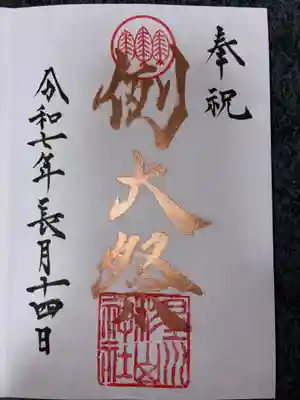 奉祝
例大祭
星川杉山神社
令和七年長月十四日